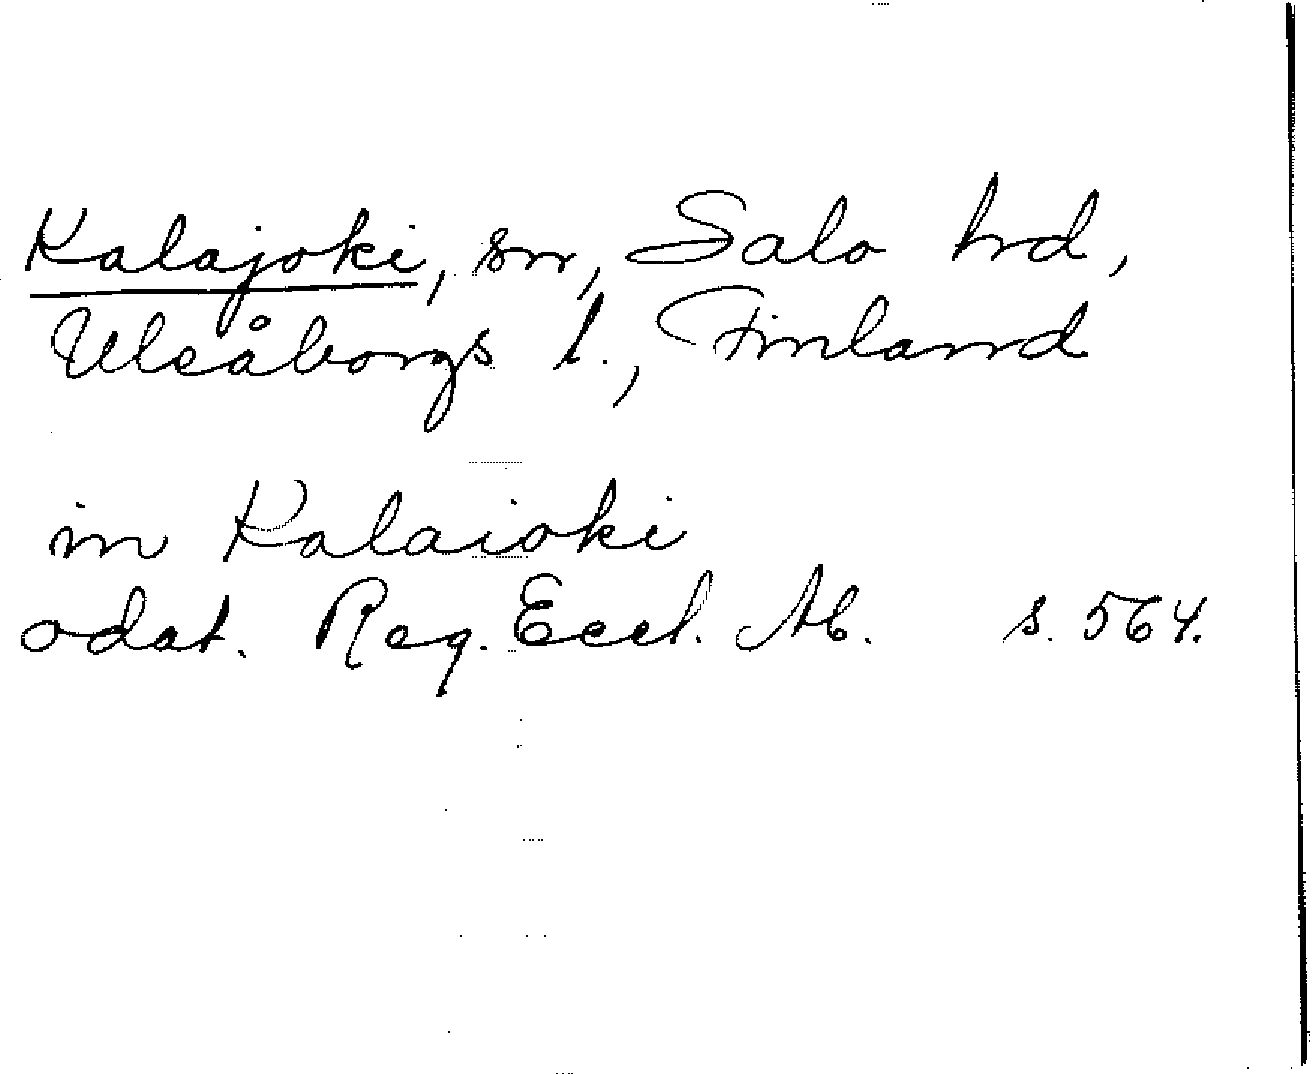 Kalajoki, sn, Salo hrd,
Uleåborgs l., Finland
in Kalaioki
odat. Reg. Eccl. Ab. s. 564.